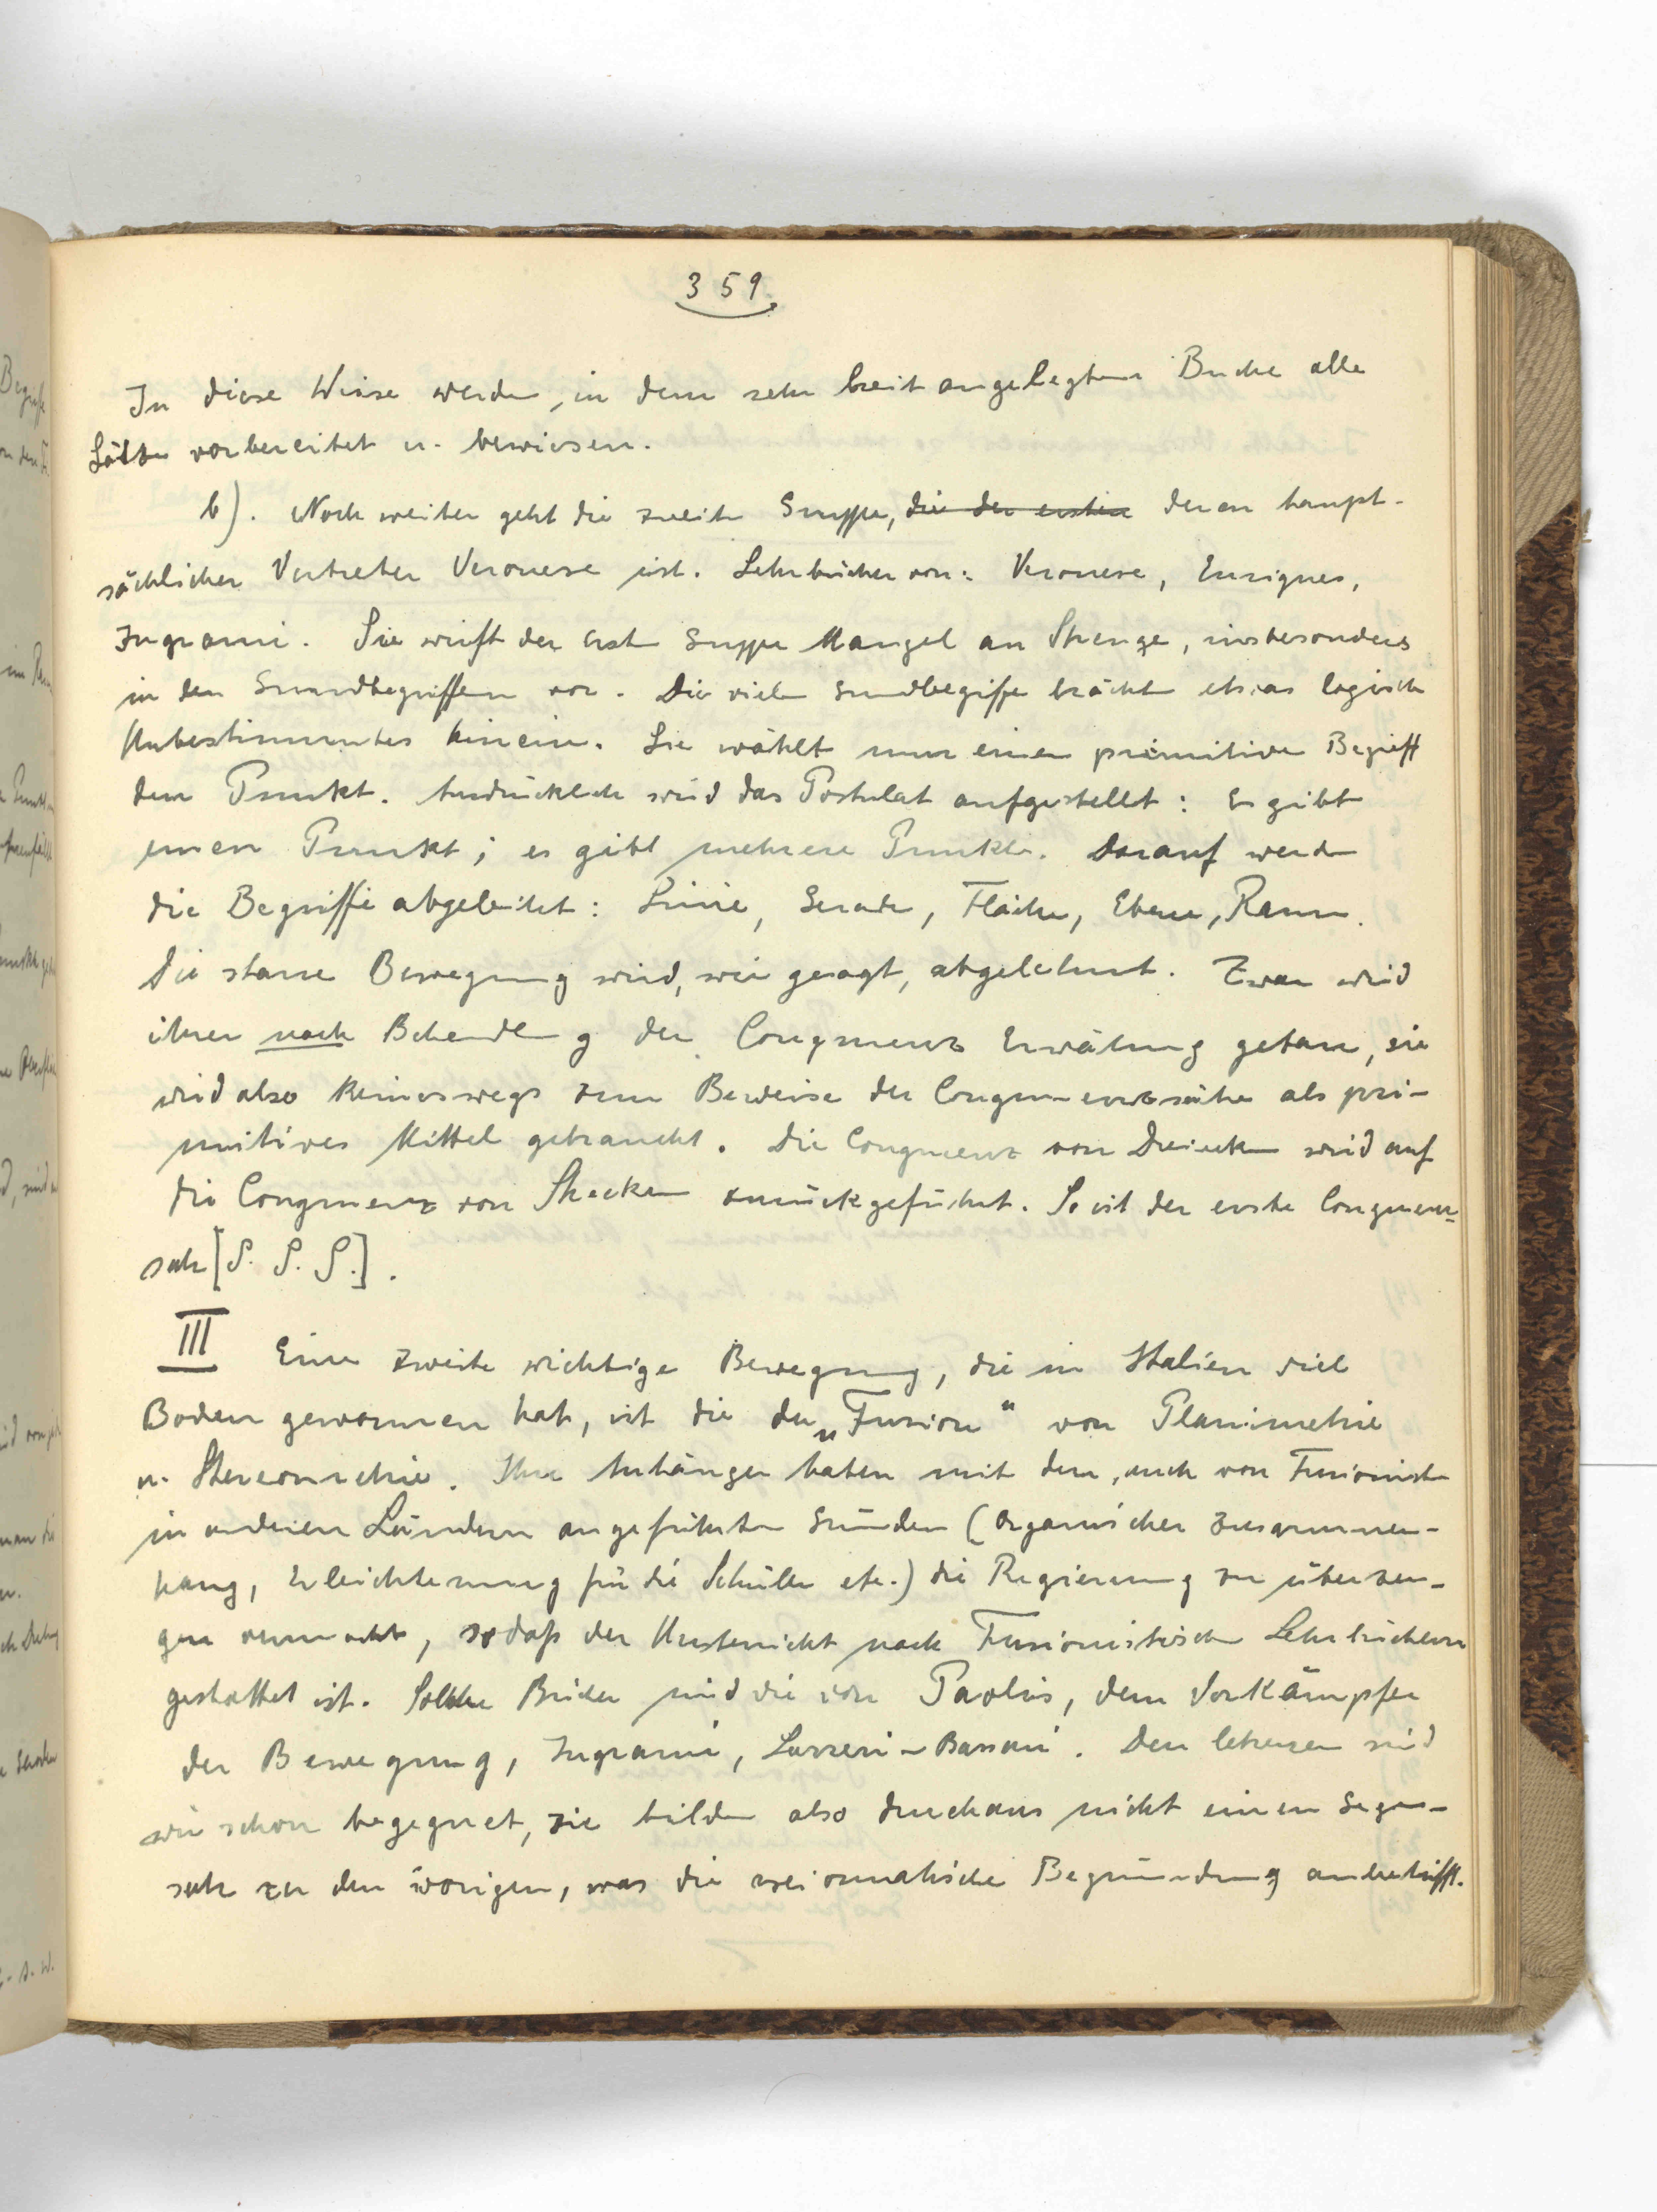 359
In diese Weise werden, in dem sehr breit angelegten Buche alle
Sätze vorbereitet u. bewiesen.
b). Noch weiter geht die zweite Gruppe, die der ersten deren haupt-
sächlicher Vertreter Veronese ist. Lehrbücher von: Veronese, Enriques,
Ingrami. Sie wirft der erst Gruppe Mangel an Strenge, insbesonders
in den Grundbegriffen vor. Die vielen Grundbegriffe brächten etwas logisch
Unbestimmtes hinein. Sie wählt nur einen primitiven Begriff
den Punkt. Ausdrücklich wird das Postulat aufgestellt: Es gibt
einen Punkt; es gibt mehrere Punkte. Darauf werden
die Begriffe abgeleitet: Linie, Gerade, Fläche, Ebene, Raum.
Die starre Bewegung wird, wie gesagt, abgelehnt. Zwar wird
ihrer nach Behandlung der Congruenz Erwähnung getan, sie
wird also keineswegs zum Beweise der Congruenzsätze als pri-
mitives Mittel gebraucht. Die Congruenz von Dreiecken wird auf
die Congruenz von Strecken zurückgeführt. So ist der erste Congruenz-
satz [S. S. S.].
III Eine zweite wichtige Bewegung, die in Italien viel
Boden gewonnen hat, ist die der „Fusion" von Planimetrie
u. Stereometrie. Ihre Anhänger haben mit den, auch von Fusionisten
in anderen Ländern angeführten Gründen (organischer Zusammen-
hang, Erleichterung für die Schüler etc.) die Regierung zu überzeu-
gen vermocht, sodaß der Unterricht nach Fusionistischen Lehrbüchern
gestattet ist. Solche Bücher sind die von Paolis, dem Vorkämpfer
der Bewegung, Ingrami, Lazzeri-Bassani. Den letzteren sind
wir schon begegnet, sie bilden also durchaus nicht einen Gegen-
satz zu den vorigen, was die axiomatische Begründung anbetrifft.